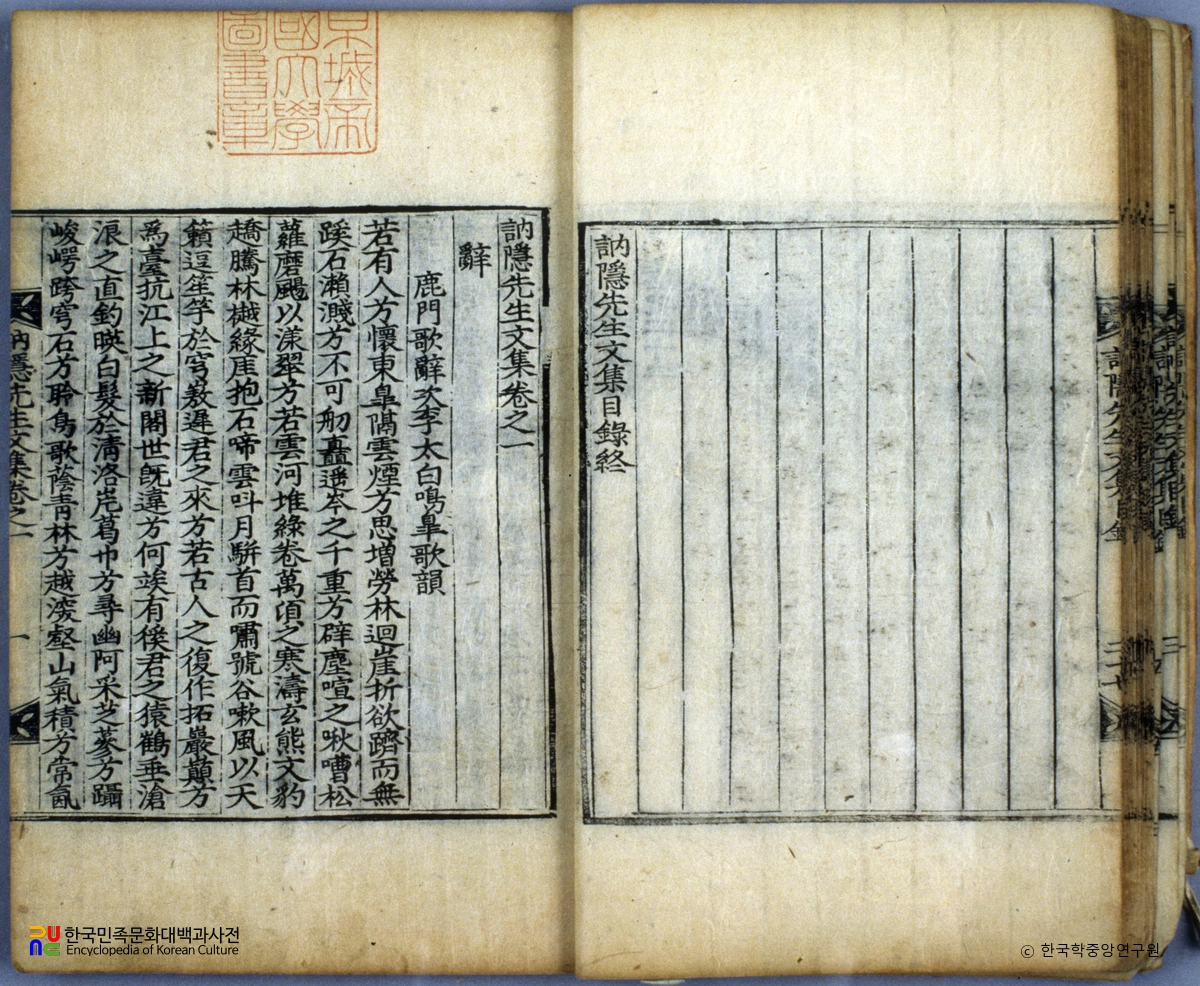 訥隱先生文集目錄終
京城帝
國大學
圖書章
訥隱先生文集卷之一
辭
鹿門歌辭次李太白鳴臯歌韻
若有人兮懷東臯隔雲煙兮思增勞林迴崖折欲躋而無
蹊石瀨濺兮不可舠矗遥岑之千重兮辟塵喧之啾嘈松
蘿磨颸以漾翠兮若雲河堆綠卷萬頃之寒濤玄熊文豹
趫騰林樾緣崖抱石啼雲呌月駢首而嘯號谷嗽風以天
籟逗笙竽於穹嵌遲君之來兮若古人之復作拓巖巔兮
爲臺抗江上之新閣世旣違兮何竢有徯君之猿鶴垂滄
浪之直釣暎白髮於淸洛岸葛巾兮尋幽阿采芝蔘兮躡
峻崿跨穹石兮聆鳥歌蔭靑林兮越溪壑山氣積兮常氤
訥隱先生文集卷之一
一
한국민족문화대백과사전
Encyclopedia of Korean Culture
ⓒ 한국학중앙연구원